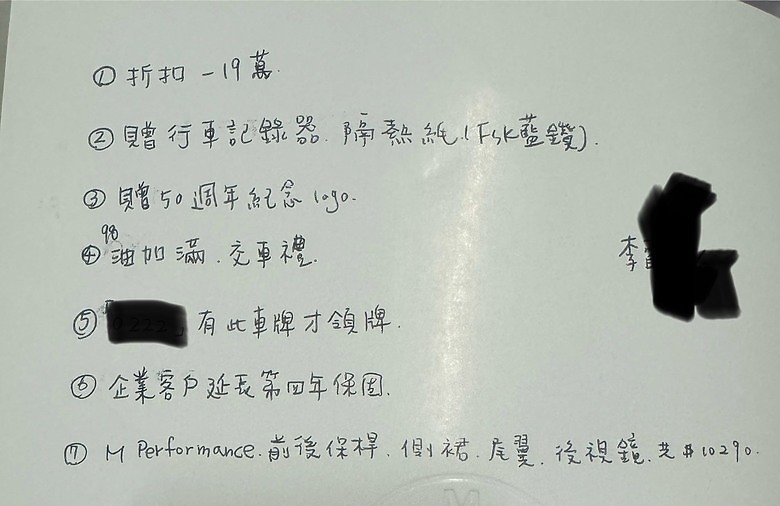 ① 折扣 -19萬.
② 贈行車記錄器. 隔熱紙.(FSK藍鑽).
③ 贈50週年紀念 logo.
④ 98油加滿. 交車禮.
李
⑤ 有此車牌才領牌.
⑥ 企業客戶延長第四年保固.
⑦ M Performance. 前後保桿. 側裙. 尾翼. 後視鏡. 共$10290.